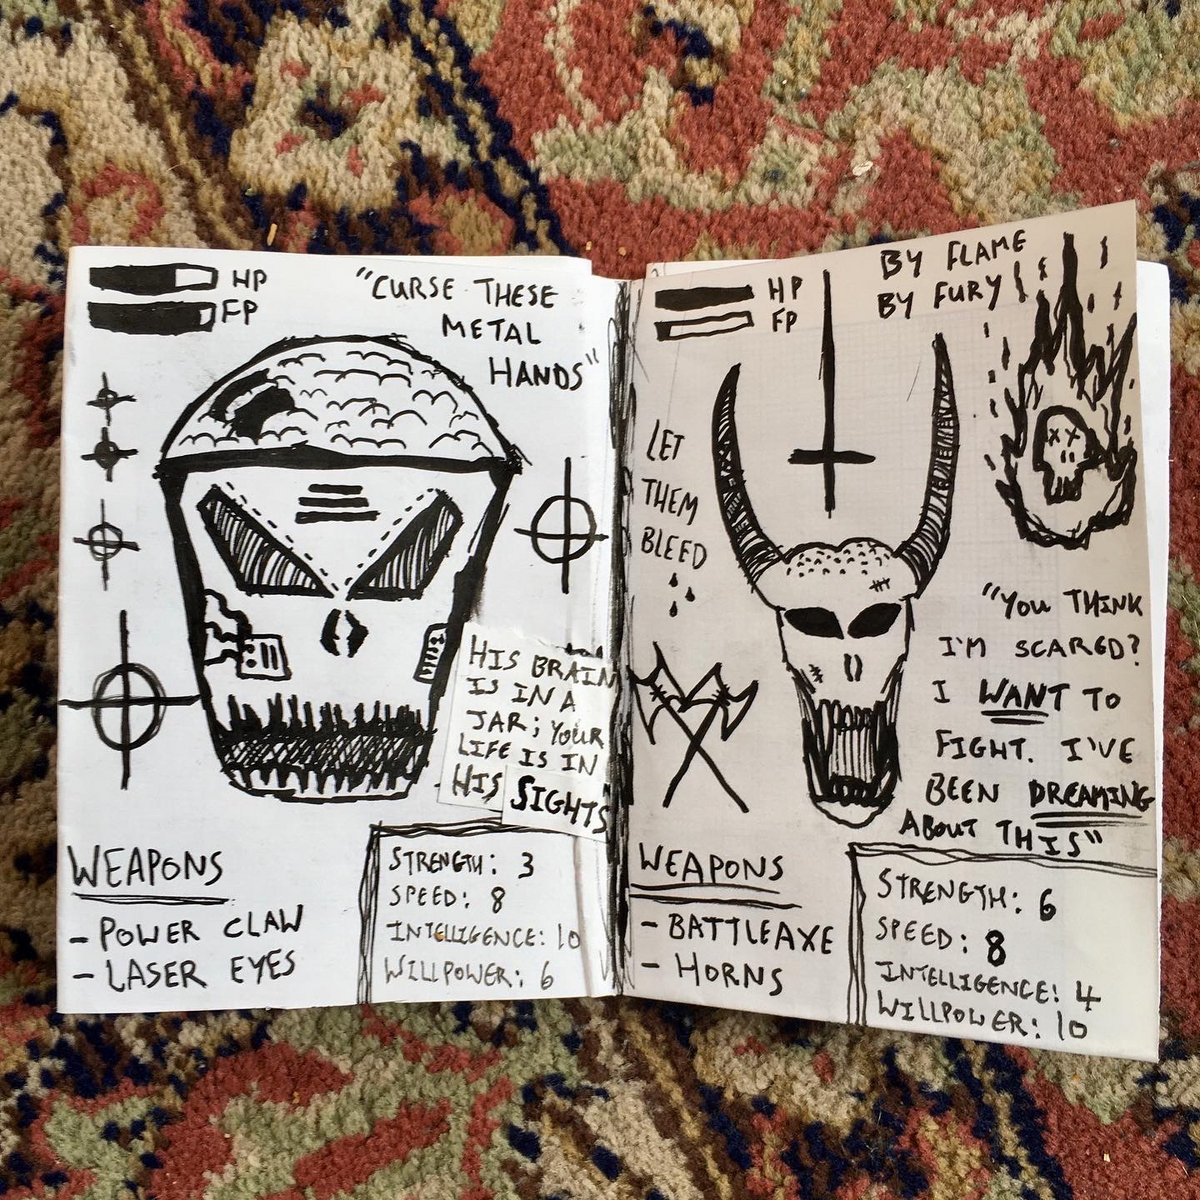 HP
FP
"CURSE THESE
METAL
HANDS"
HIS BRAIN
IS IN A
JAR; YOUR
LIFE IS IN
HIS SIGHTS
WEAPONS
- POWER CLAW
- LASER EYES
STRENGTH: 3
SPEED: 8
INTELLIGENCE: 10
WILLPOWER: 6
HP
FP
BY FLAME
BY FURY
LET
THEM
BLEED
"YOU THINK
I'M SCARED?
I WANT TO
FIGHT. I'VE
BEEN DREAMING
ABOUT THIS"
WEAPONS
- BATTLEAXE
- HORNS
STRENGTH: 6
SPEED: 8
INTELLIGENCE: 4
WILLPOWER: 10